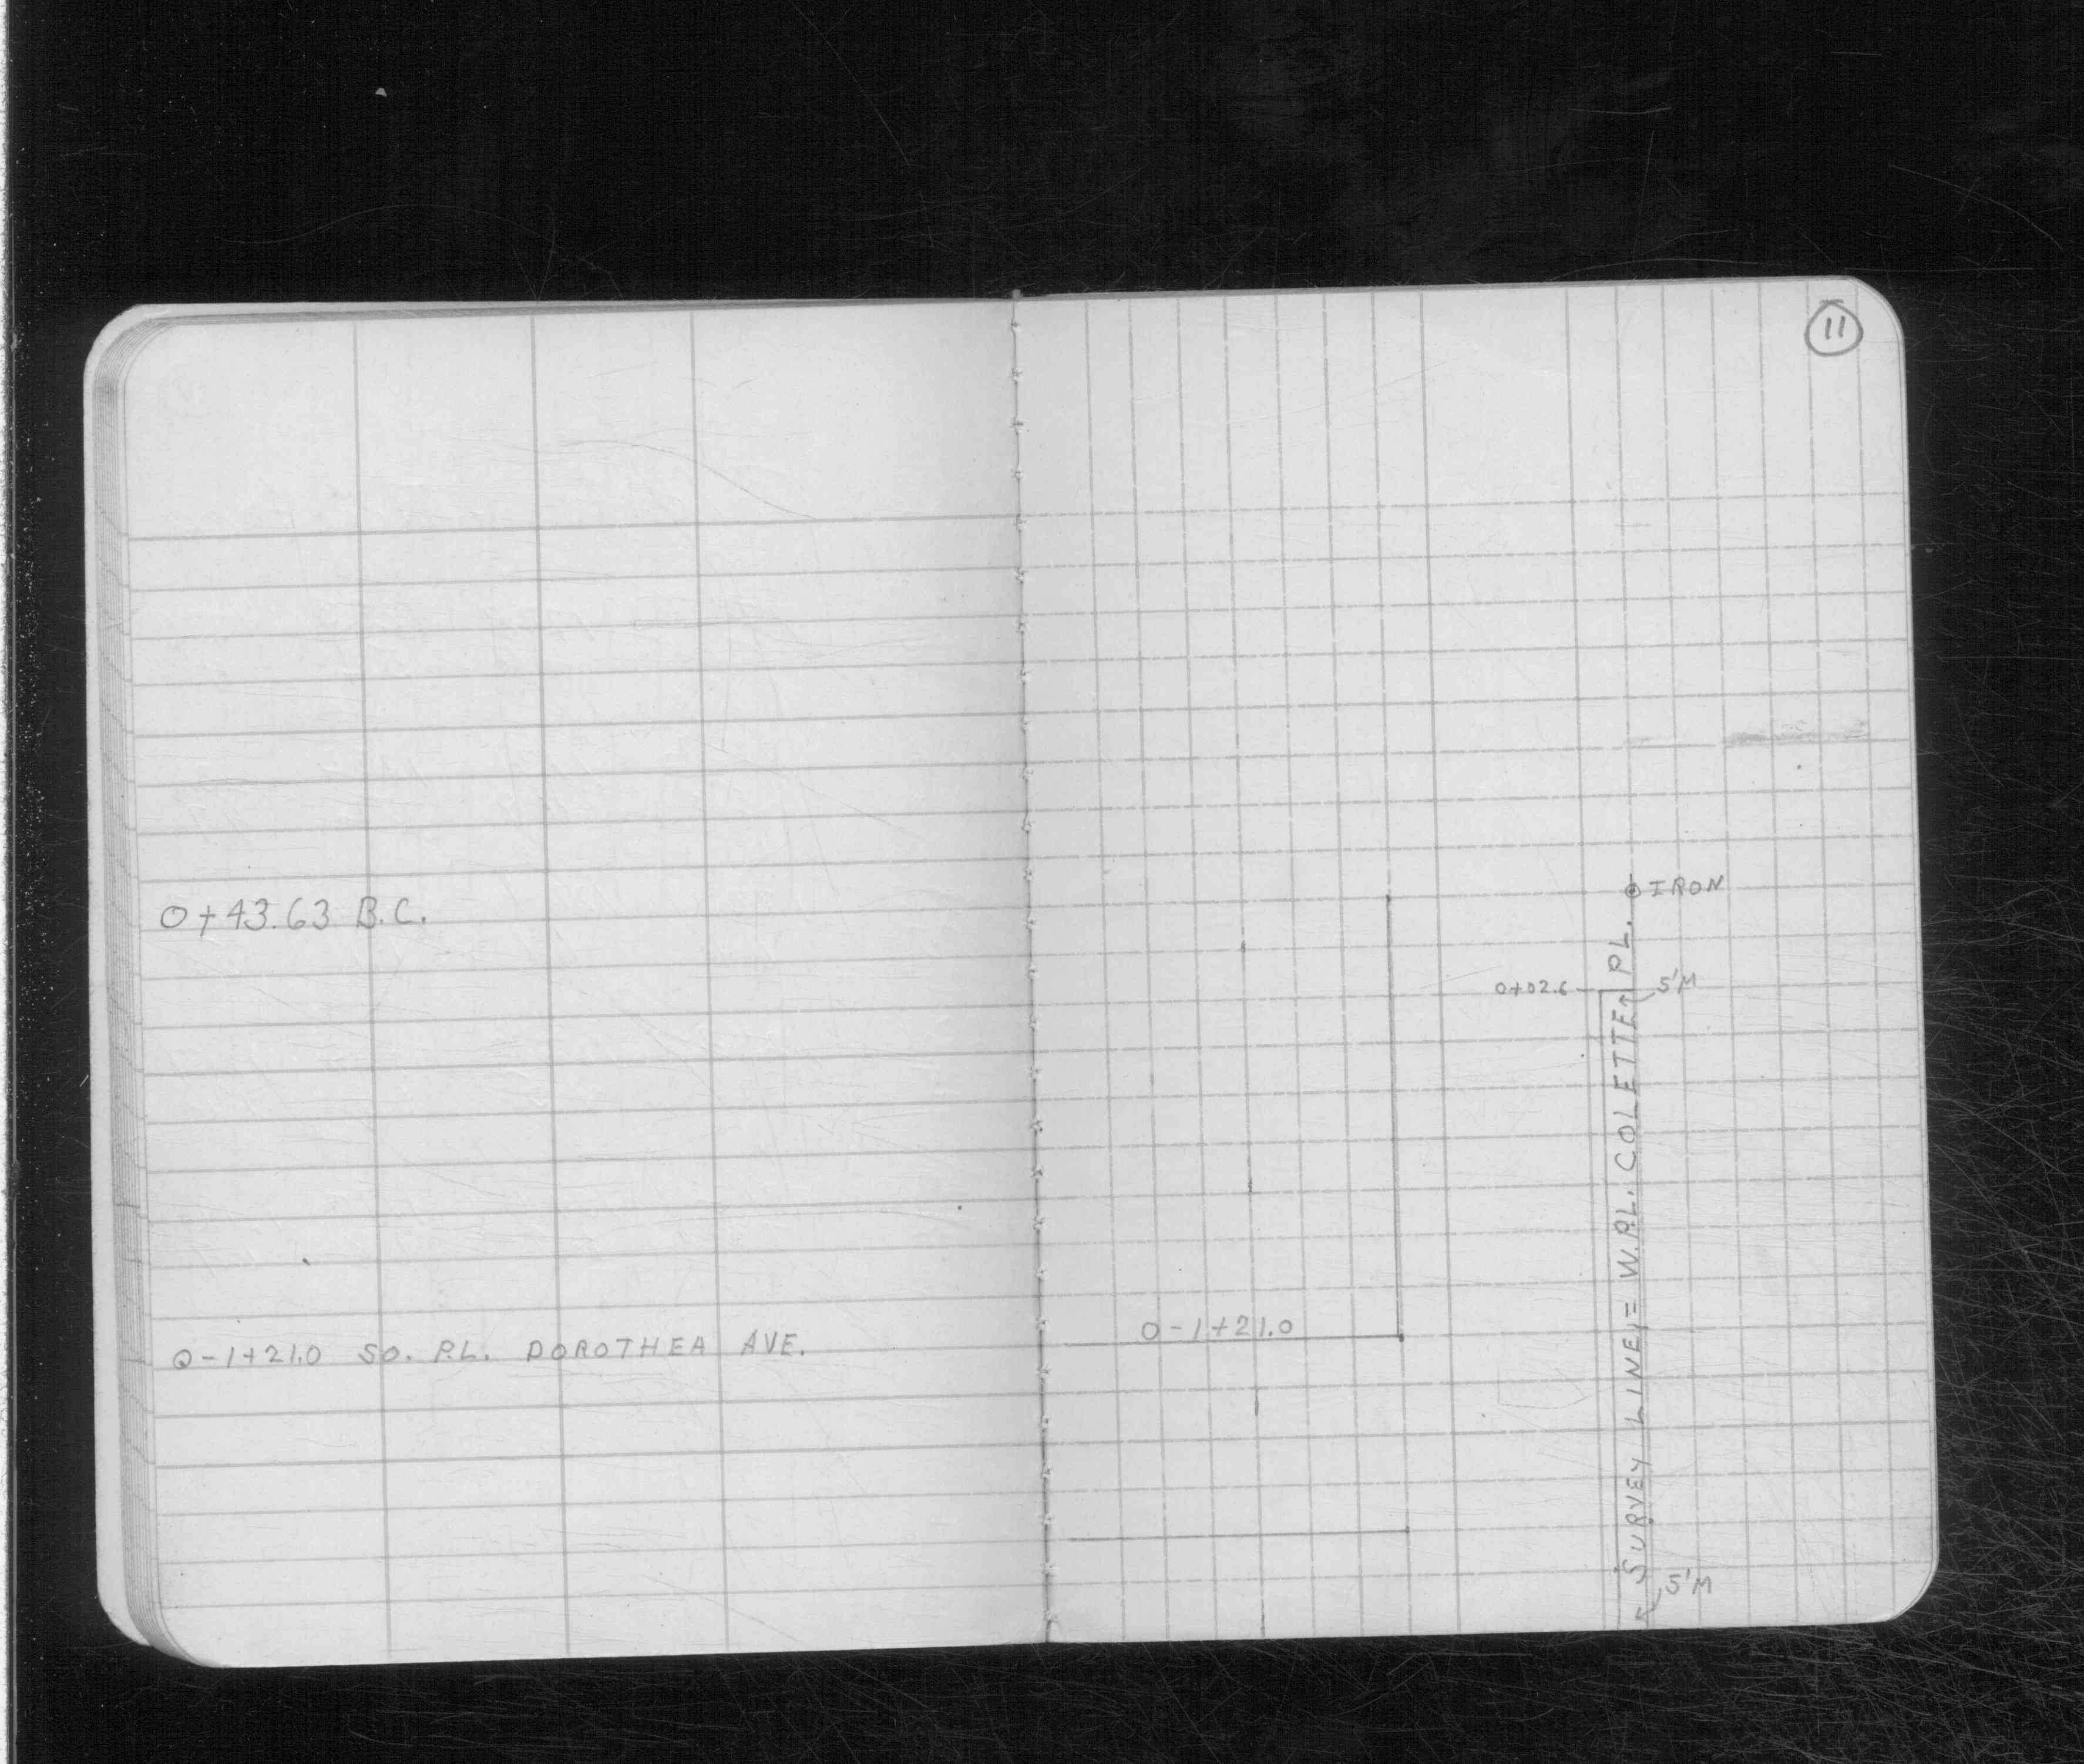 11
0+43.63 B.C.
0-1+21.0 SO. P.L. DOROTHEA AVE.
IRON
0+02.6
5'M
SURVEY LINE = W.P.L. COLETTE PL.
0-1+21.0
5'M